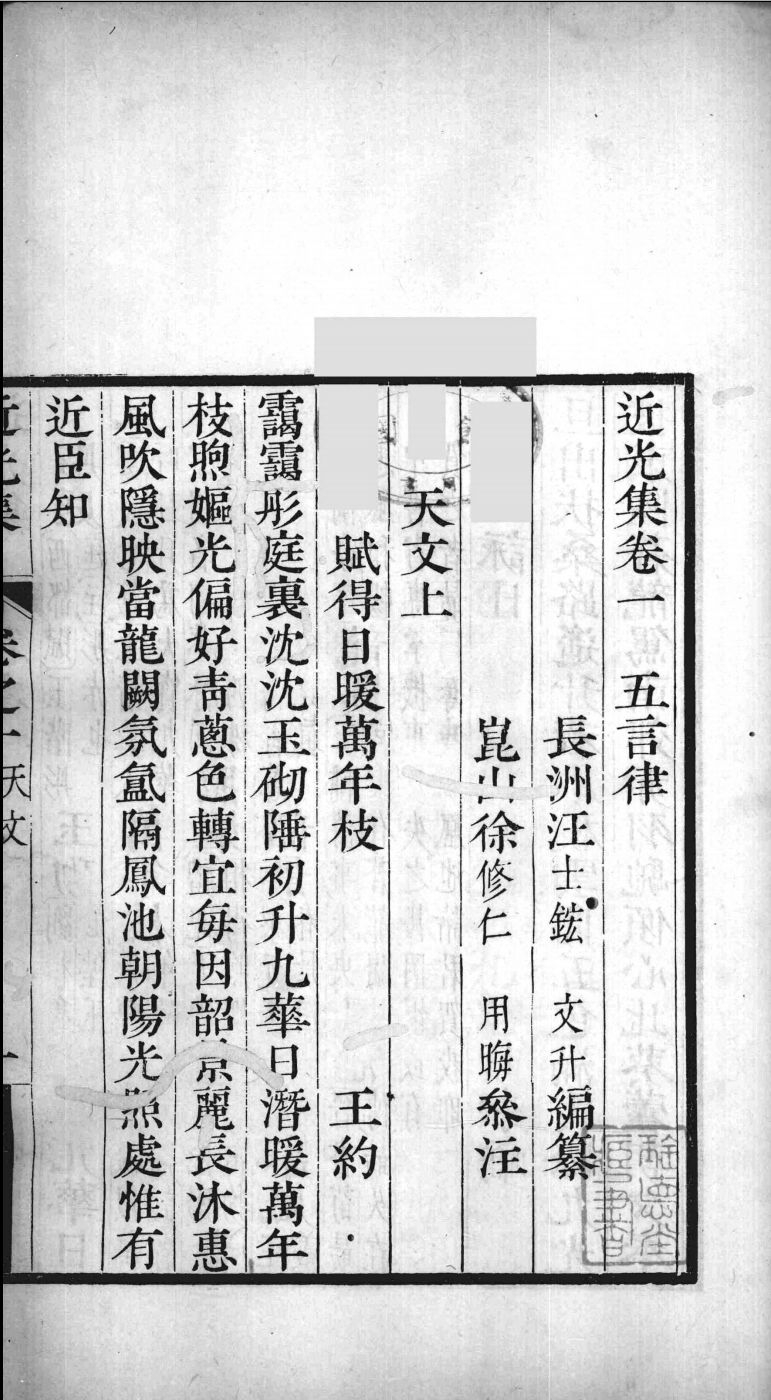 近光集卷一 五言律
長洲汪士鋐 文升編纂
崑山徐修仁 用晦叅注
天文上
賦得日暖萬年枝 王約
靄靄彤庭裏沈沈玉砌陲初升九華日潛暖萬年
枝煦嫗光偏好青蔥色轉宜每因韶景麗長沐惠
風吹隱映當龍闕氛氳隔鳳池朝陽光照處惟有
近臣知
近光集 卷之一 天文 一